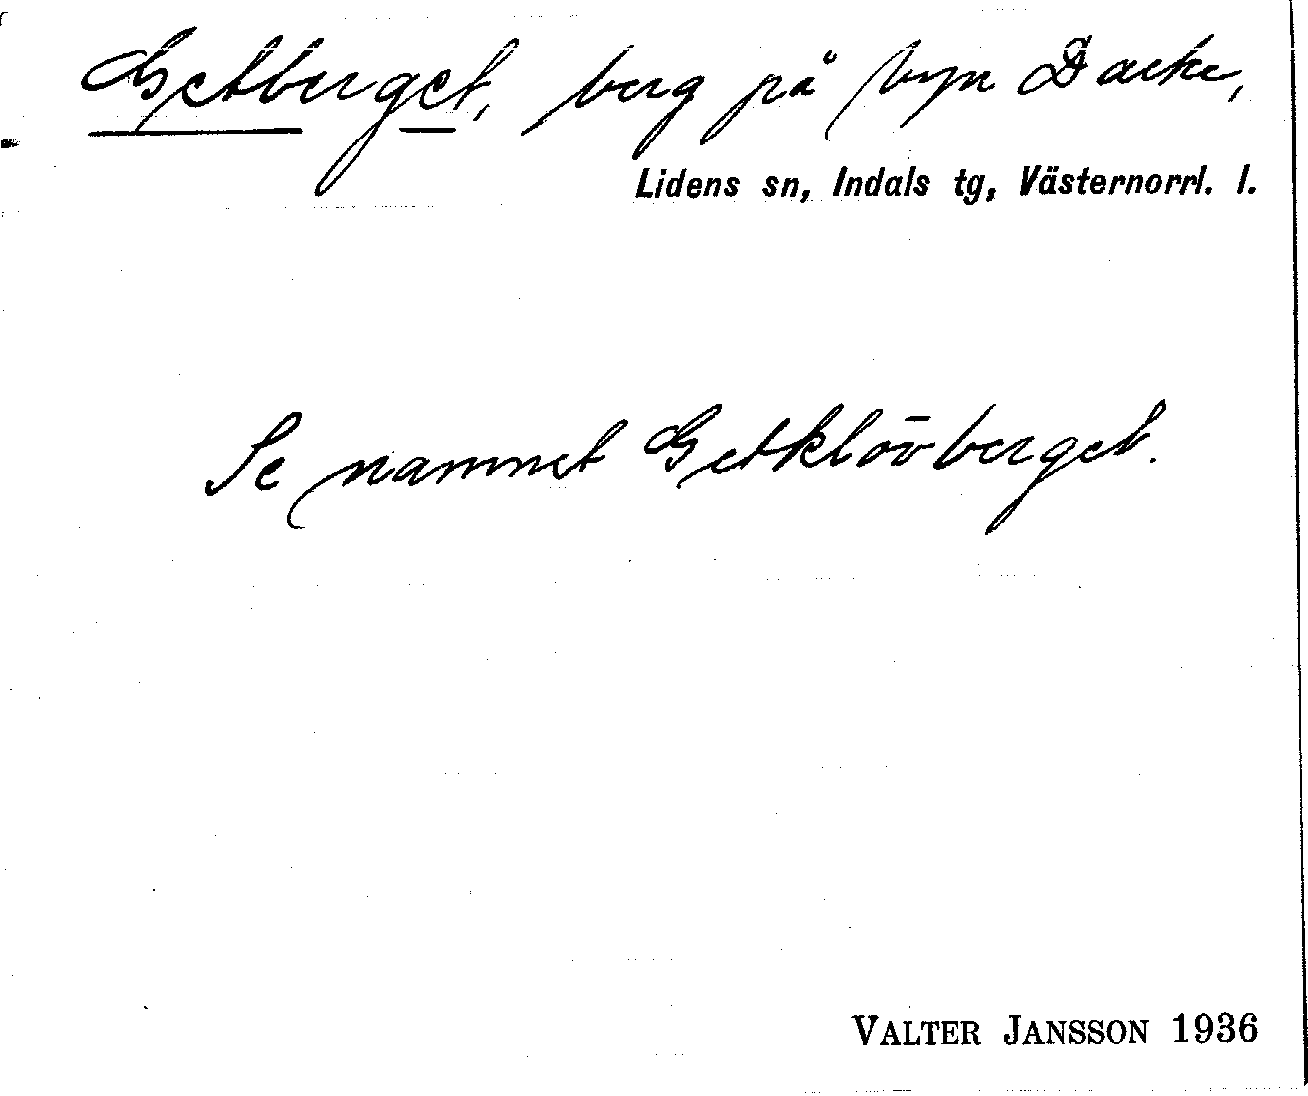 Getberget, berg på byn Dacke,
Lidens sn, Indals tg, Västernorrl. l.
Se namnet Getklōvberget.
VALTER JANSSON 1936